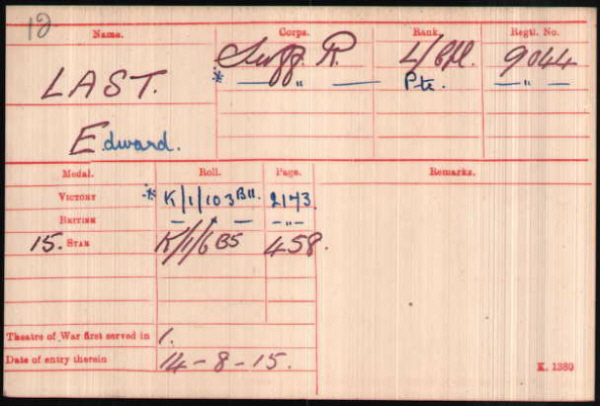 12
Name. Corps. Rank. Regtl. No.
LAST. Suff. R. L/Cpl. 9044
* — " — Pte. — " —
Edward.
Medal. Roll. Page. Remarks.
VICTORY * K/1/103 B11. 2173.
BRITISH — " — — " —
15. STAR K/1/6 B5 458.
Theatre of War first served in 1.
Date of entry therein 14-8-15.
K. 1380